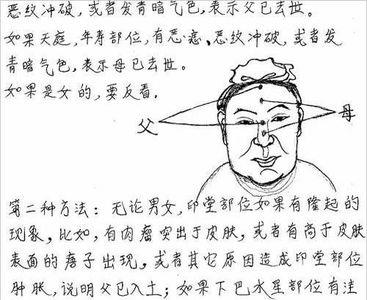 恶纹冲破，或者发青暗气色，表示父已去世。
如果天庭，年寿部位，有恶痣、恶纹冲破，或者发
青暗气色，表示母已去世。
如果是女的，要反看。
父
母
第二种方法：无论男女，印堂部位如果有隆起的
现象，比如，有肉瘤突出于皮肤，或者有高于皮肤
表面的痦子出现，或者其它原因造成印堂部位
肿胀，说明父已入土；如果下巴水星部位有洼